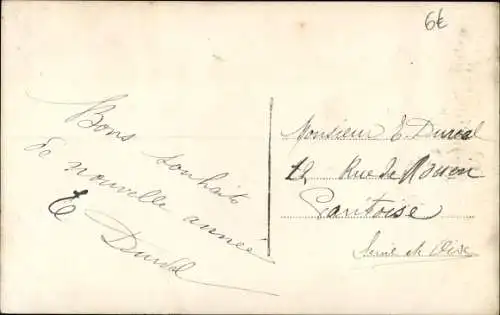 6€
Bons souhaits
de nouvelle année
E Durêl
Monsieur E. Durêl
12, Rue de Rouen
Pontoise
Seine et Oise